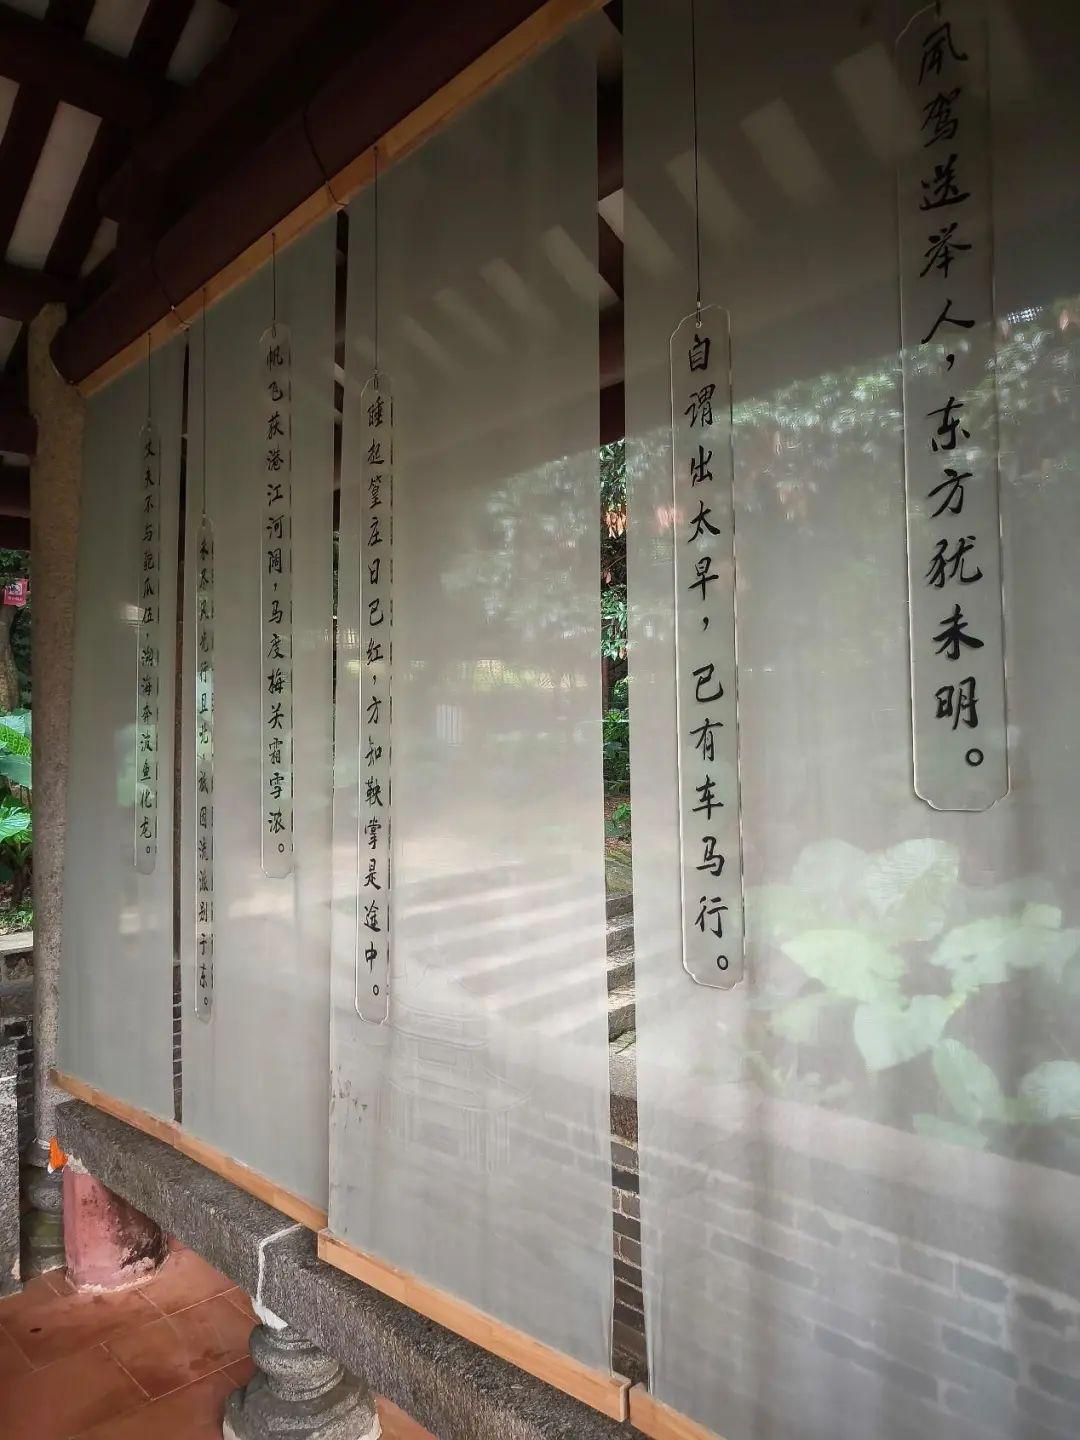 夙驾送举人，东方犹未明。
自谓出太早，已有车马行。
睡起篁庄日已红，方知鞅掌是途中。
帆飞荻港江河阔，马度梅关霜雪浓。
风光行且北，因流派别于东。
丈夫不与匏瓜伍，湖海奔波鱼化龙。